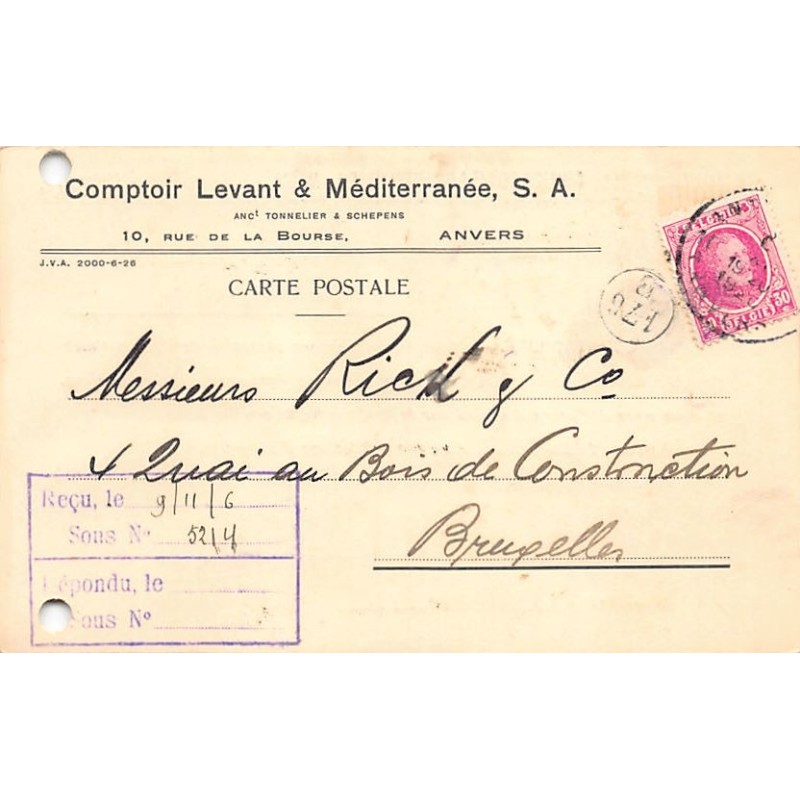 Comptoir Levant & Méditerranée, S. A.
ANCt TONNELIER & SCHEPENS
10, RUE DE LA BOURSE, ANVERS
J.V.A. 2000-6-26
CARTE POSTALE
BELGIQUE
30
BELGIE
Messieurs Rich & Co
4 Quai au Bois de Construction
Bruxelles
Reçu, le 9/11/6
Sous No 52/4
Répondu, le
Sous No